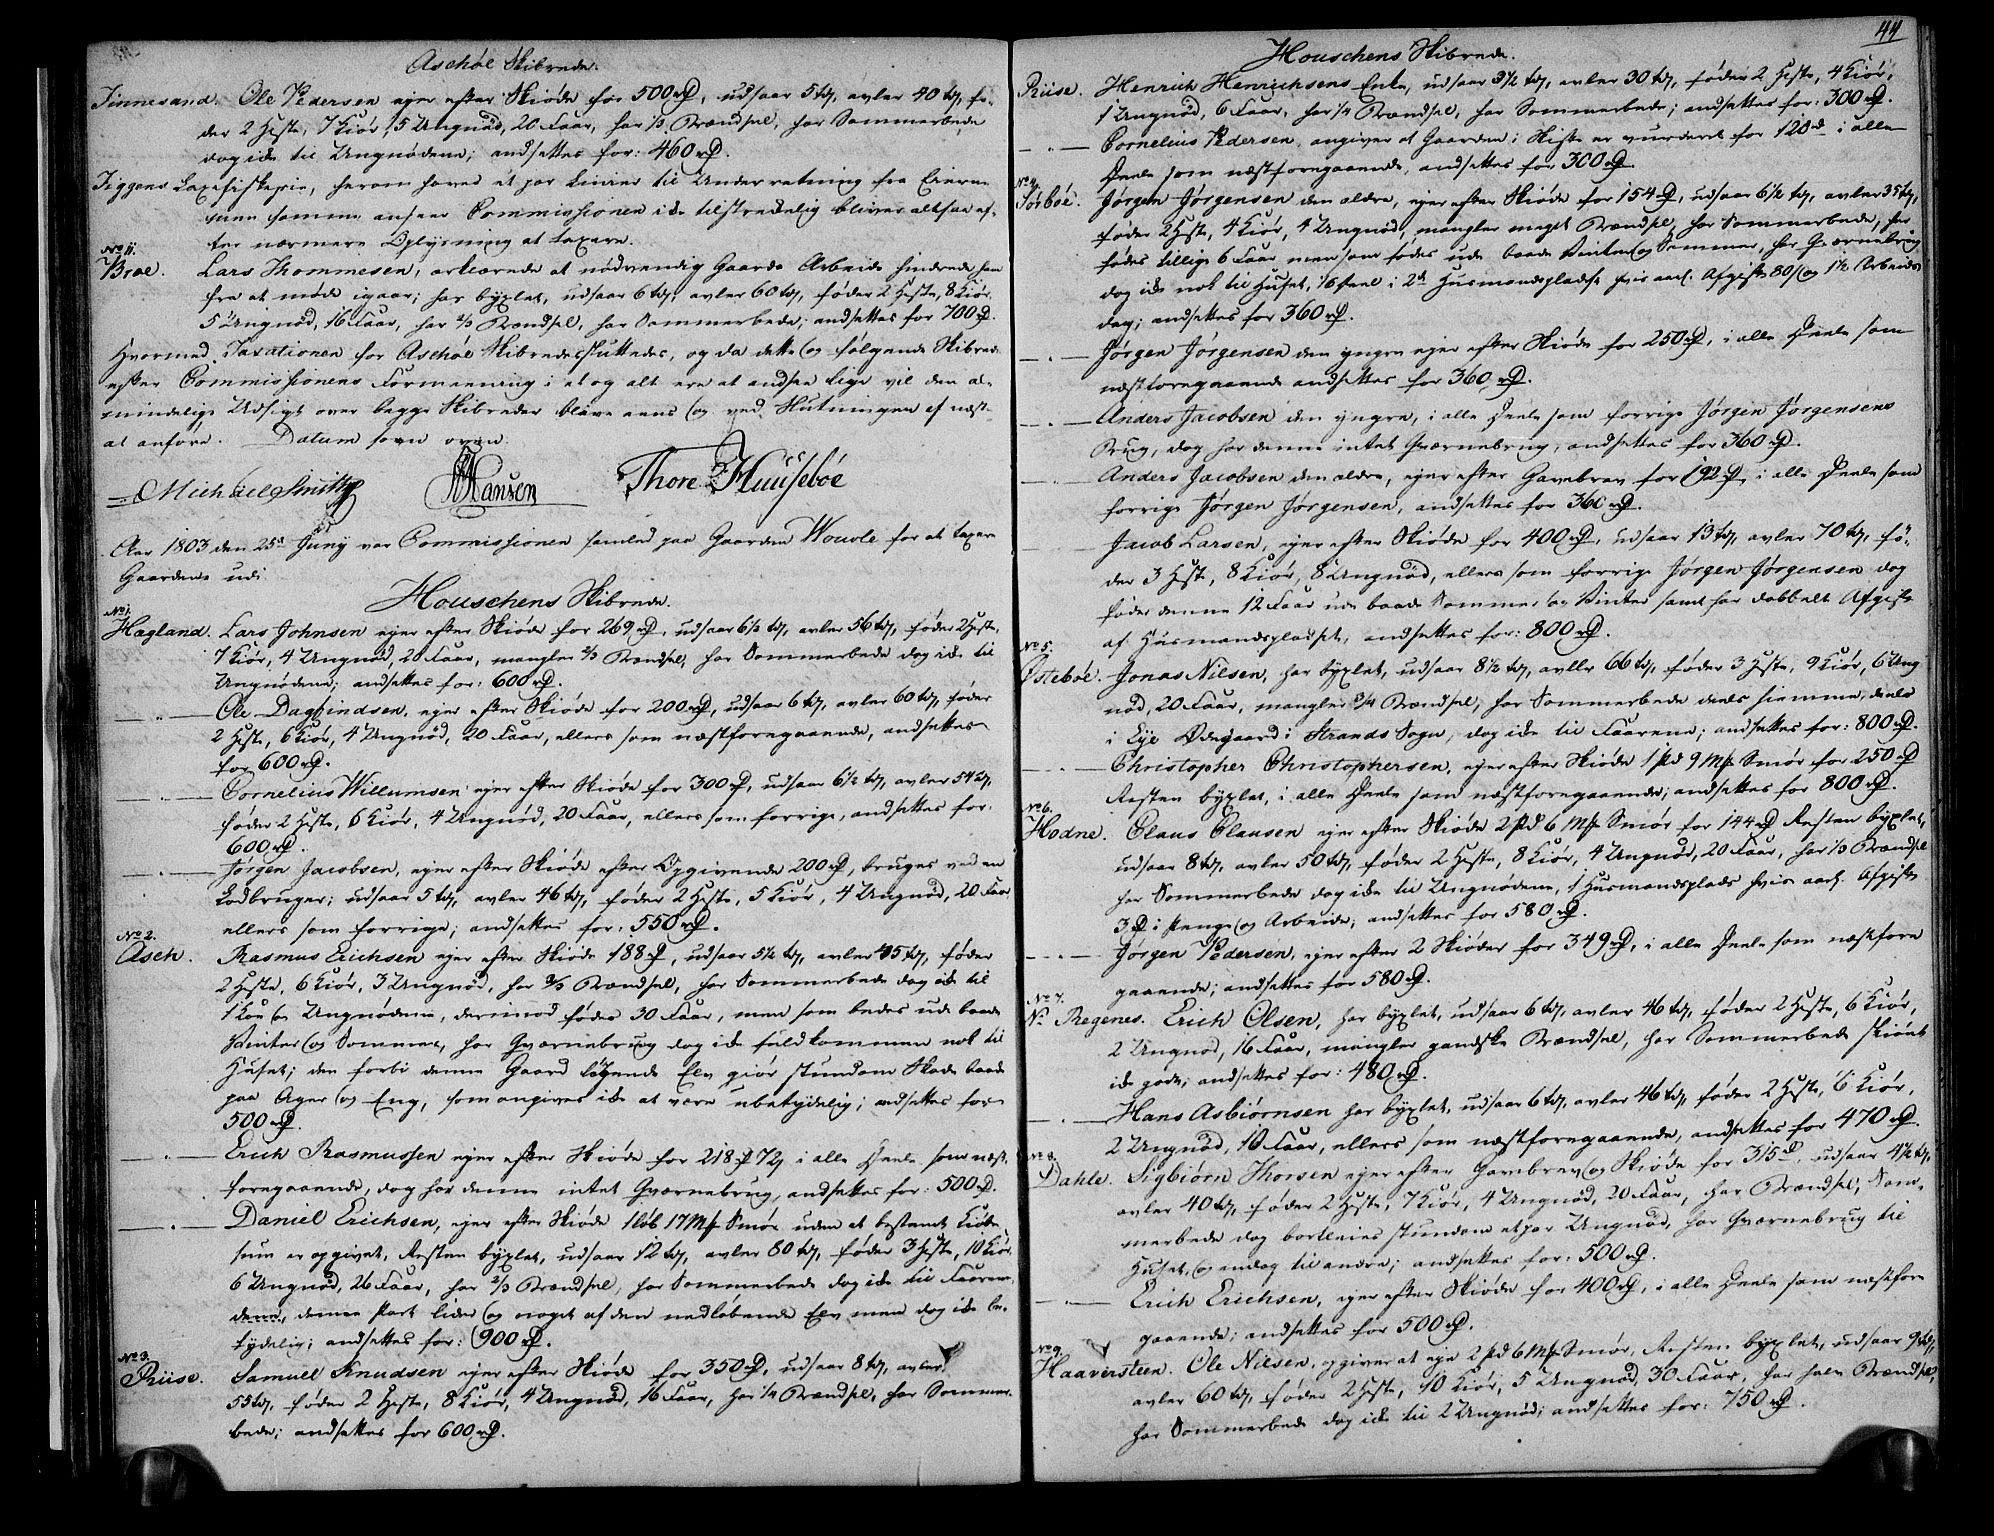 Aschöe Skibrede.
Tinnesand. Ole Pedersen ejer efter Skiøde for 500 rD, udsaar 5 td, avler 40 td, fø-
der 2 Heste, 7 Kiør, 5 Ungnød, 20 Faar, har 1/3 Brændsel, har Sommerbede
dog ikke til Ungnødene; ansettes for: 460 rD.
Tiggens Laxefiskerie, herom haves et par Linier til Underretning fra Eierne
men samme ansees Commissionen ikke tilstrekkelig bliver altsaa ef-
ter nærmere Oplysning at taxere.
No 11.
Broe. Lars Thommesen, erklærede at nødvendig Gaards Arbeide hindrede ham
fra at møde igaar; har byxlet, udsaar 6 td, avler 60 td, føder 2 Heste, 8 Kiør,
5 Ungnød, 16 Faar, har 2/3 Brændsel, har Sommerbede; ansettes for 700 rD.
Hvormed Taxationen for Aschöe Skibrede sluttedes, og da dette og følgende Skibrede
efter Commissionens Formeening i et og alt ere at ansee lige vil den al-
mindelige Udsigt over begge Skibreder blive eens og ved Slutningen af næst-
at anføre. Datum som oven
Michael Smith Hansen Thore Huusebøe
Aar 1803 den 25de Juny var Commissionen samled paa Gaarden Wouvle for at taxere
Gaardene udi
Houschens Skibrede.
No 1.
Hagland. Lars Johnsen ejer efter Skiøde for 269 rD, udsaar 6 1/2 td, avler 56 td, føder 2 Heste,
7 Kiør, 4 Ungnød, 20 Faar, mangler 2/3 Brændsel, har Sommerbede dog ikke til
Ungnødene; ansettes for: 600 rD.
— " — Ole Dagfindsen, ejer efter Skiøde for 200 rD, udsaar 6 td, avler 60 td, føder
2 Heste, 6 Kiør, 4 Ungnød, 20 Faar, ellers som næstforegaaende, ansettes
for 600 rD.
— " — Cornelius Willumsen ejer efter Skiøde for 300 rD, udsaar 6 1/2 td, avler 54 td,
føder 2 Heste, 6 Kiør, 4 Ungnød, 20 Faar, ellers som forrige, ansettes for
600 rD.
— " — Jørgen Jacobsen, ejer efter Skiøde efter Opgivende 200 rD, bruges ved en
Lodbruger; udsaar 5 td, avler 46 td, føder 2 Heste, 5 Kiør, 4 Ungnød, 20 Faar
ellers som forrige; ansettes for: 550 rD.
No 2.
Asch. Rasmus Erichsen ejer efter Skiøde 188 rD, udsaar 5 1/2 td, avler 45 td, føder
2 Heste, 6 Kiør, 3 Ungnød, har 2/3 Brændsel, har Sommerbede dog ikke til
1 Koe og Ungnødene, derimod fødes 30 Faar, men som bedes ude baade
Vinter og Sommer, har Qværnebrug dog ikke fuldkommen nok til
Huset; den forbi denne Gaard løbende Elv giør stundom Skade baade
paa Ager og Eng, som angives ikke at være ubetydelig; ansettes for
500 rD.
— " — Erich Rasmussen ejer efter Skiøde for 218 rD 72 s i alle Deele som næst-
foregaaende, dog har denne intet Qværnebrug, ansettes for: 500 rD.
— " — Daniel Erichsen, ejer efter Skiøde 1 Løb 17 Mrk Smør uden at bestemt Kiøbe
sum er opgivet, Resten byxlet, udsaar 12 td, avler 80 td, føder 3 Heste, 10 Kiør,
6 Ungnød, 26 Faar, har 2/3 Brændsel, har Sommerbede dog ikke til Faarene,
denne Part lider og noget af den nedløbende Elv men dog ikke be-
tydelig; ansettes for: 900 rD.
No 3.
Riise. Samuel Knudsen ejer efter Skiøde for 350 rD, udsaar 8 td, avler
55 td, føder 2 Heste, 8 Kiør, 4 Ungnød, 16 Faar, har 1/4 Brændsel, har Sommer-
bede; ansettes for 600 rD.
44
Houschens Skibrede.
Riise. Henrich Henrichsens Enke, udsaar 3 1/2 td, avler 30 td, føder 2 Heste, 4 Kiør,
1 Ungnød, 6 Faar, har 1/4 Brændsel, har Sommerbede; ansettes for: 300 rD.
— " — Cornelius Pedersen, angiver at Gaarden i Skifte er vurderet for 120 rD i alle
Deele som næstforegaaende, ansettes for 300 rD.
No 4.
Tørböe. Jørgen Jørgensen den ældre, ejer efter Skiøde for 154 rD, udsaar 6 1/2 td, avler 35 td,
føder 2 Heste, 4 Kiør, 4 Ungnød, mangler meget Brændsel, har Sommerbede, her
fødes tillige 6 Faar men som fødes ude baade Vinter og Sommer, har Qværnebrug
dog ikke nok til Huset, 1/6 Deel i 2de Husmandspladse hvis aarl. Afgift 80 s og 1 1/2 Arbeids
dag; ansettes for 360 rD.
— " — Jørgen Jørgensen den yngre ejer efter Skiøde for 250 rD, i alle Deele som
næstforegaaende ansettes for 360 rD.
— " — Anders Jacobsen den yngre, i alle Deele som forrige Jørgen Jørgensens
Brug, dog har denne intet Qværnebrug, ansettes for 360 rD.
— " — Anders Jacobsen den ældre, ejer efter Gavebrev for 192 rD, i alle Deele som
forrige Jørgen Jørgensen, ansettes for 360 rD.
Jacob Larsen, ejer efter Skiøde for 400 rD, udsaar 13 td, avler 70 td, fø-
der 3 Heste, 8 Kiør, 8 Ungnød, ellers som forrige Jørgen Jørgensen dog
føder denne 12 Faar ude baade Sommer og Vinter samt har dobbelt Afgift
af Husmandspladset, ansettes for: 800 rD.
No 5.
Østebøe. Jonas Nilsen, har byxlet, udsaar 8 1/2 td, avler 66 td, føder 3 Heste, 9 Kiør, 6 Ung
nød, 20 Faar, mangler 3/4 Brændsel, har Sommerbede deels hiemme, deels
i Eye Ødegaard i Strands Sogn, dog ikke til Faarene; ansettes for: 800 rD.
— " — Christopher Christophersen, ejer efter Skiøde 1 pd 9 Mrk Smør for 250 rD
Resten byxlet, i alle Deele som næstforegaaende; ansettes for 800 rD.
No 6.
Hodne. Claus Clausen ejer efter Skiøde 2 pd 6 Mrk Smør for 144 rD Resten byxlet,
udsaar 8 td, avler 50 td, føder 2 Heste, 8 Kiør, 4 Ungnød, 20 Faar, har 1/3 Brændsel
har Sommerbede dog ikke til Ungnødene, 1 Husmandsplads hvis aarl. Afgift
3 rD i Penge og Arbeide; ansettes for 580 rD.
— " — Jørgen Pedersen, ejer efter 2 Skiøder for 349 rD, i alle Deele som næstfore
gaaende; ansettes for 580 rD.
No 7.
N. Regenes. Erich Olsen, har byxlet, udsaar 6 td, avler 46 td, føder 2 Heste, 6 Kiør,
2 Ungnød, 16 Faar, mangler gandske Brændsel, har Sommerbede skiønt
ikke gode; ansettes for: 480 rD.
— " — Hans Asbiørnsen har byxlet, udsaar 6 td, avler 46 td, føder 2 Heste, 6 Kiør,
2 Ungnød, 10 Faar, ellers som næstforegaaende, ansettes for 470 rD.
No 8.
Dahle. Sigbiörn Thorsen ejer efter Gavebrev og Skiøde for 315 rD, udsaar 4 1/2 td,
avler 40 td, føder 2 Heste, 7 Kiør, 4 Ungnød, 20 Faar, har Brændsel, Som-
merbede dog bortleies stundom et par Ungnød, har Qværnebrug til
Huset, og endog til andre; ansettes for: 500 rD.
— " — Erich Erichsen, ejer efter Skiøde for 400 rD, i alle Deele som næstfore
gaaende; ansettes for 500 rD.
No 9.
Haaversteen. Ole Nilsen, opgiver at eje 2 pd 6 Mrk Smør, Resten byxlet, udsaar 9 td,
avler 60 td, føder 2 Heste, 10 Kiør, 5 Ungnød, 30 Faar, har halv Brændsel,
har Sommerbede dog ikke til 2 Ungnød; ansettes for: 750 rD.